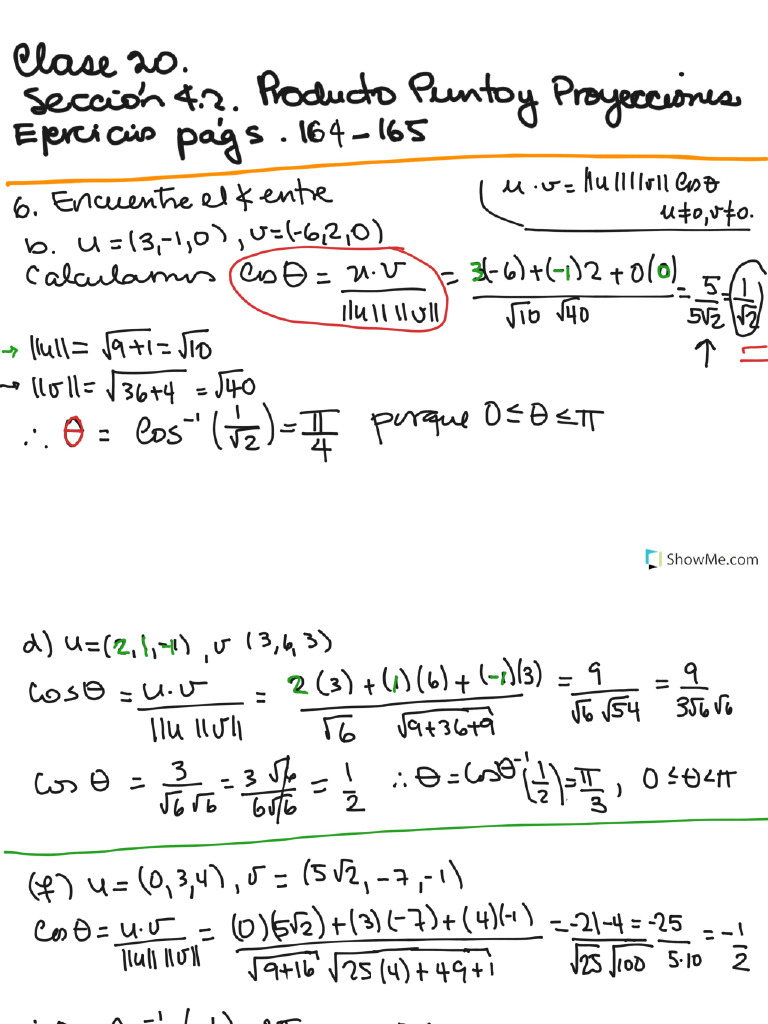 Clase 20.
Sección 4.2. Producto Punto y Proyecciones
Ejercicio págs. 164-165
u·v = ||u|| ||v|| Cos θ
u≠0, v≠0.
6. Encuentre el ∢ entre
b. u = (3,-1,0), v=(-6,2,0)
Calculamos Cos θ = u·v / ||u|| ||v|| = 3(-6)+(-1)2+0(0) / √10 √40 = 5 / 5√2 = 1/√2
→ ||u|| = √9+1 = √10
→ ||v|| = √36+4 = √40
∴ θ = Cos⁻¹(1/√2) = π/4 porque 0≤θ≤π
ShowMe.com
d) u=(2,1,-1), v (3,6,3)
Cos θ = u·v / ||u ||v|| = 2(3)+(1)(6)+(-1)(3) / √6 √9+36+9 = 9 / √6 √54 = 9 / 3√6 √6
Cos θ = 3 / √6 √6 = 3√6 / 6√6 = 1/2 ∴ θ = Cosθ⁻¹(1/2) = π/3, 0≤θ<π
(f) u = (0,3,4), v = (5√2, -7, -1)
Cos θ = u·v / ||u|| ||v|| = (0)(5√2)+(3)(-7)+(4)(-1) / √9+16 √25(4)+49+1 = -21-4 / √25 √100 = -25 / 5·10 = -1/2